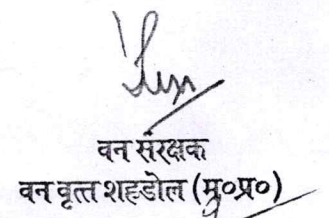 वन संरक्षक
वन वृत्त शहडोल (म०प्र०)